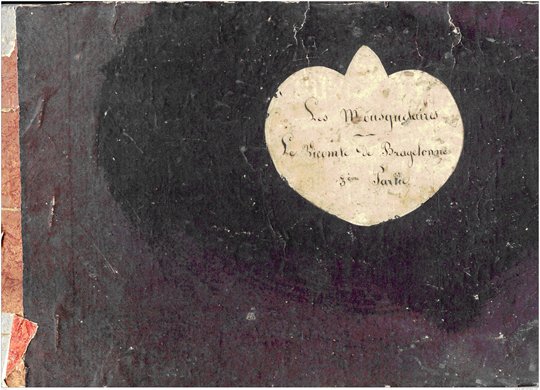 Les Mousquetaires
Le Vicomte de Bragelonne
3ème Partie